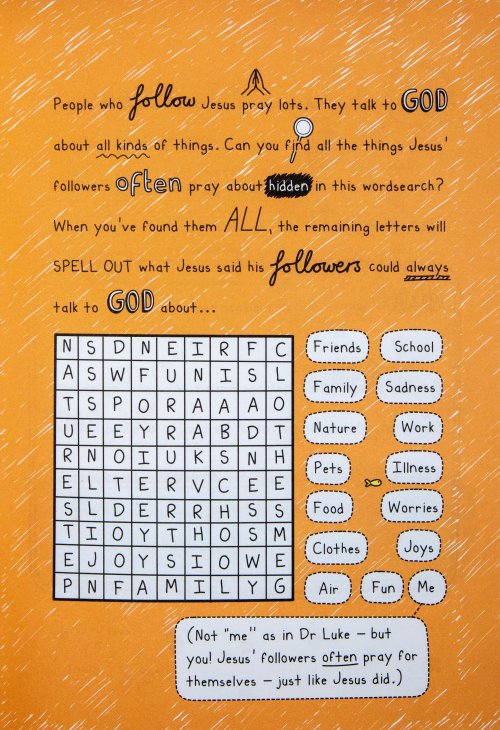 People who follow Jesus pray lots. They talk to GOD
about all kinds of things. Can you find all the things Jesus'
followers often pray about hidden in this wordsearch?
When you've found them ALL, the remaining letters will
SPELL OUT what Jesus said his followers could always
talk to GOD about...
N S D N E I R F C
A S W F U N I S L
T S P O R A A A O
U E E Y R A B D T
R N O I U K S N H
E L T E R V C E E
S L D E R R H S S
T I O Y T H O S M
E J O Y S I O W E
P N F A M I L Y G
Friends School
Family Sadness
Nature Work
Pets Illness
Food Worries
Clothes Joys
Air Fun Me
(Not "me" as in Dr Luke – but
you! Jesus' followers often pray for
themselves – just like Jesus did.)